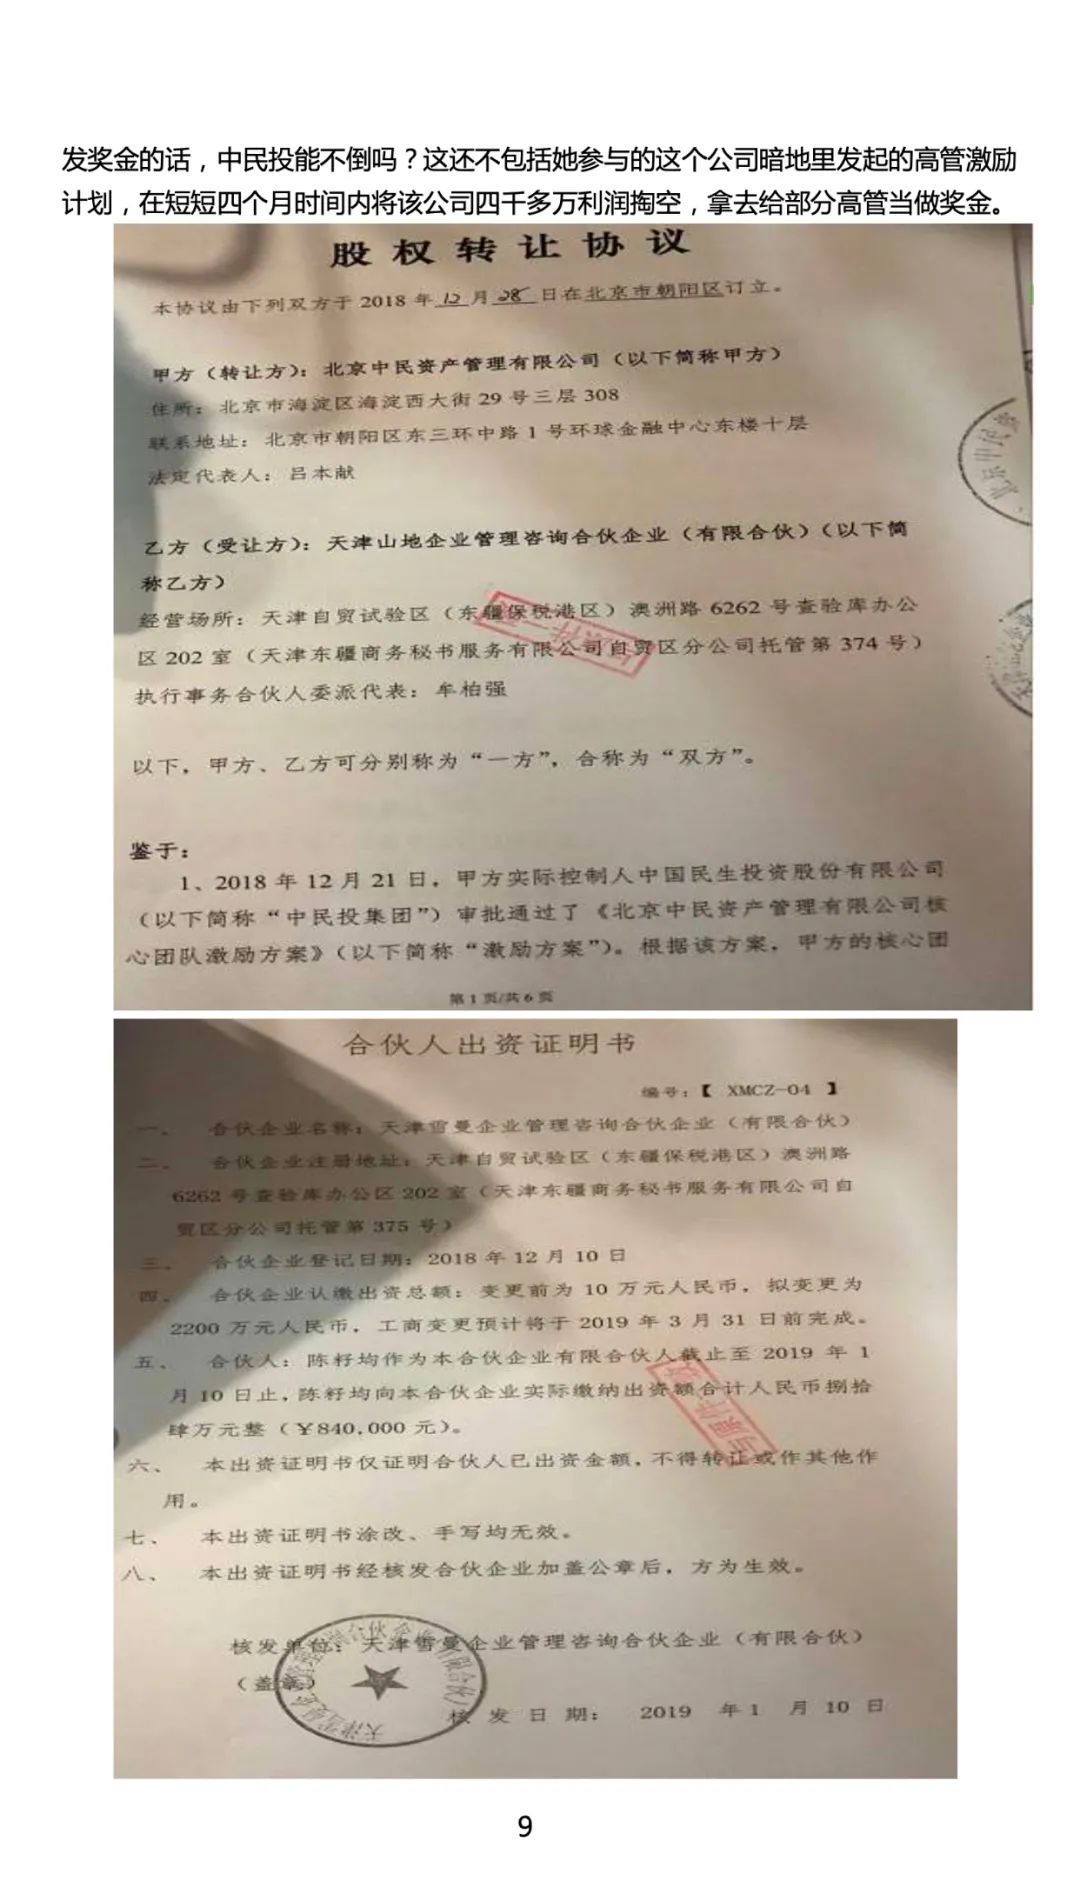 发奖金的话，中民投能不倒吗？这还不包括她参与的这个公司暗地里发起的高管激励
计划，在短短四个月时间内将该公司四千多万利润掏空，拿去给部分高管当做奖金。
股权转让协议
本协议由下列双方于 2018 年 12 月 28 日在北京市朝阳区订立。
甲方（转让方）：北京中民资产管理有限公司（以下简称甲方）
住所：北京市海淀区海淀西大街 29 号三层 308
联系地址：北京市朝阳区东三环中路 1 号环球金融中心东楼十层
法定代表人：吕本献
乙方（受让方）：天津山地企业管理咨询合伙企业（有限合伙）（以下简
称乙方）
经营场所：天津自贸试验区（东疆保税港区）澳洲路 6262 号查验库办公
区 202 室（天津东疆商务秘书服务有限公司自贸区分公司托管第 374 号）
执行事务合伙人委派代表：牟柏强
以下，甲方、乙方可分别称为“一方”，合称为“双方”。
鉴于：
1、2018 年 12 月 21 日，甲方实际控制人中国民生投资股份有限公司
（以下简称“中民投集团”）审批通过了《北京中民资产管理有限公司核
心团队激励方案》（以下简称“激励方案”）。根据该方案，甲方的核心团
第 1 页/共 6 页
合伙人出资证明书
编号：【 XMCZ-04 】
一、 合伙企业名称：天津雪曼企业管理咨询合伙企业（有限合伙）
二、 合伙企业注册地址：天津自贸试验区（东疆保税港区）澳洲路
6262 号查验库办公区 202 室（天津东疆商务秘书服务有限公司自
贸区分公司托管第 375 号）
三、 合伙企业登记日期：2018 年 12 月 10 日
四、 合伙企业认缴出资总额：变更前为 10 万元人民币，拟变更为
2200 万元人民币，工商变更预计将于 2019 年 3 月 31 日前完成。
五、 合伙人：陈籽均作为本合伙企业有限合伙人截止至 2019 年 1
月 10 日止，陈籽均向本合伙企业实际缴纳出资额合计人民币捌拾
肆万元整（￥840,000 元）。
六、 本出资证明书仅证明合伙人已出资金额，不得转让或作其他作
用。
七、 本出资证明书涂改、手写均无效。
八、 本出资证明书经核发合伙企业加盖公章后，方为生效。
核发单位：天津雪曼企业管理咨询合伙企业（有限合伙）
（盖章）
核 发 日 期： 2019 年 1 月 10 日
9